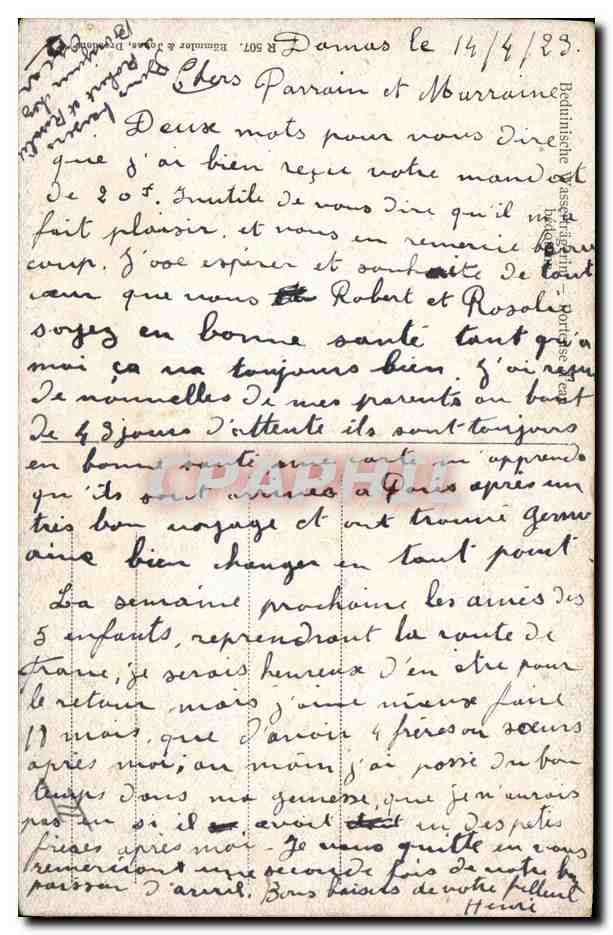 Damas le 14/4/23.
Chers Parrain et Marraine
Deux mots pour vous dire
que j'ai bien reçu votre mandat
de 20f. Inutile de vous dire qu'il m'a
fait plaisir et vous en remercie beau
coup. J'ose espérer et souhaite de tout
cœur que vous Robert et Rosalie
soyez en bonne santé tant qu'a
moi ça va toujours bien J'ai reçu
de nouvelles de mes parents au bout
de 43 jours d'attente ils sont toujours
en bonne santé une carte m'apprends
qu'ils sont arrivés a Paris après un
très bon voyage et ont trouvé Germ
aine bien changer en tout point.
La semaine prochaine les ainés des
5 enfants, reprendront la route de
France, je serais heureux d'en être pour
le retour, mais j'aime mieux faire
11 mois, que d'avoir 4 frères ou sœurs
après moi; au moin j'ai passé du bon
temps dans ma genesse, que je n'aurais
pas eu si il avait un des petis
frères après moi - Je vous quitte en vous
remerciant une seconde fois de votre
poisson d'avril. Bons baisers de votre filleul
Henri
Bons baisers
Robert et
Bonjour chez
R 507. Römmler & Jonas, Dresden
Beduinische Wasserträgerin – Porteuse d'eau
bédouine
CPAPHIL